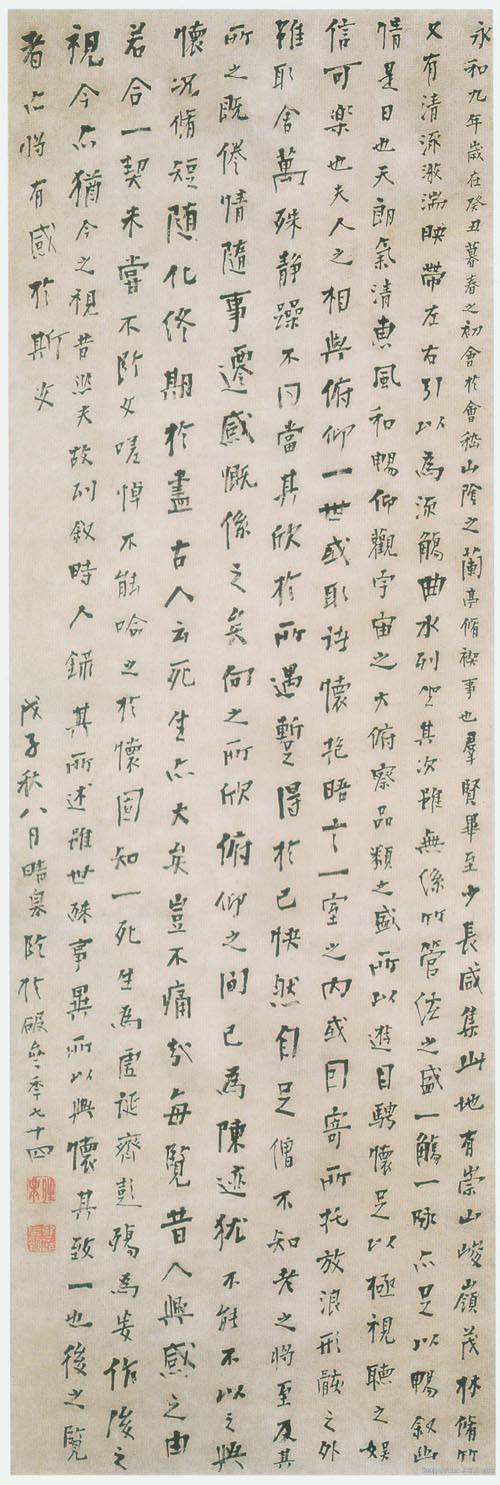 永和九年歲在癸丑暮春之初會於會嵇山陰之蘭亭脩禊事也羣賢畢至少長咸集此地有崇山峻嶺茂林脩竹
又有清流激湍映帶左右引以為流觴曲水列坐其次雖無絲竹管弦之盛一觴一詠亦足以暢叙幽
情是日也天朗氣清惠風和暢仰觀宇宙之大俯察品類之盛所以遊目騁懷足以極視聽之娛
信可樂也夫人之相與俯仰一世或取諸懷抱晤言一室之內或因寄所托放浪形骸之外
雖取舍萬殊靜躁不同當其欣於所遇暫得於己快然自足僧不知老之將至及其
所之既倦情隨事遷感慨係之矣向之所欣俯仰之間已為陳迹猶不能不以之興
懷況脩短隨化終期於盡古人云死生亦大矣豈不痛哉每覽昔人興感之由
若合一契未嘗不臨文嗟悼不能喻之於懷固知一死生為虛誕齊彭殤為妄作後之
視今亦猶今之視昔悲夫故列叙時人錄其所述雖世殊事異所以興懷其致一也後之覽
者亦將有感於斯文
戊子秋八月晴皋臨於 年七十四